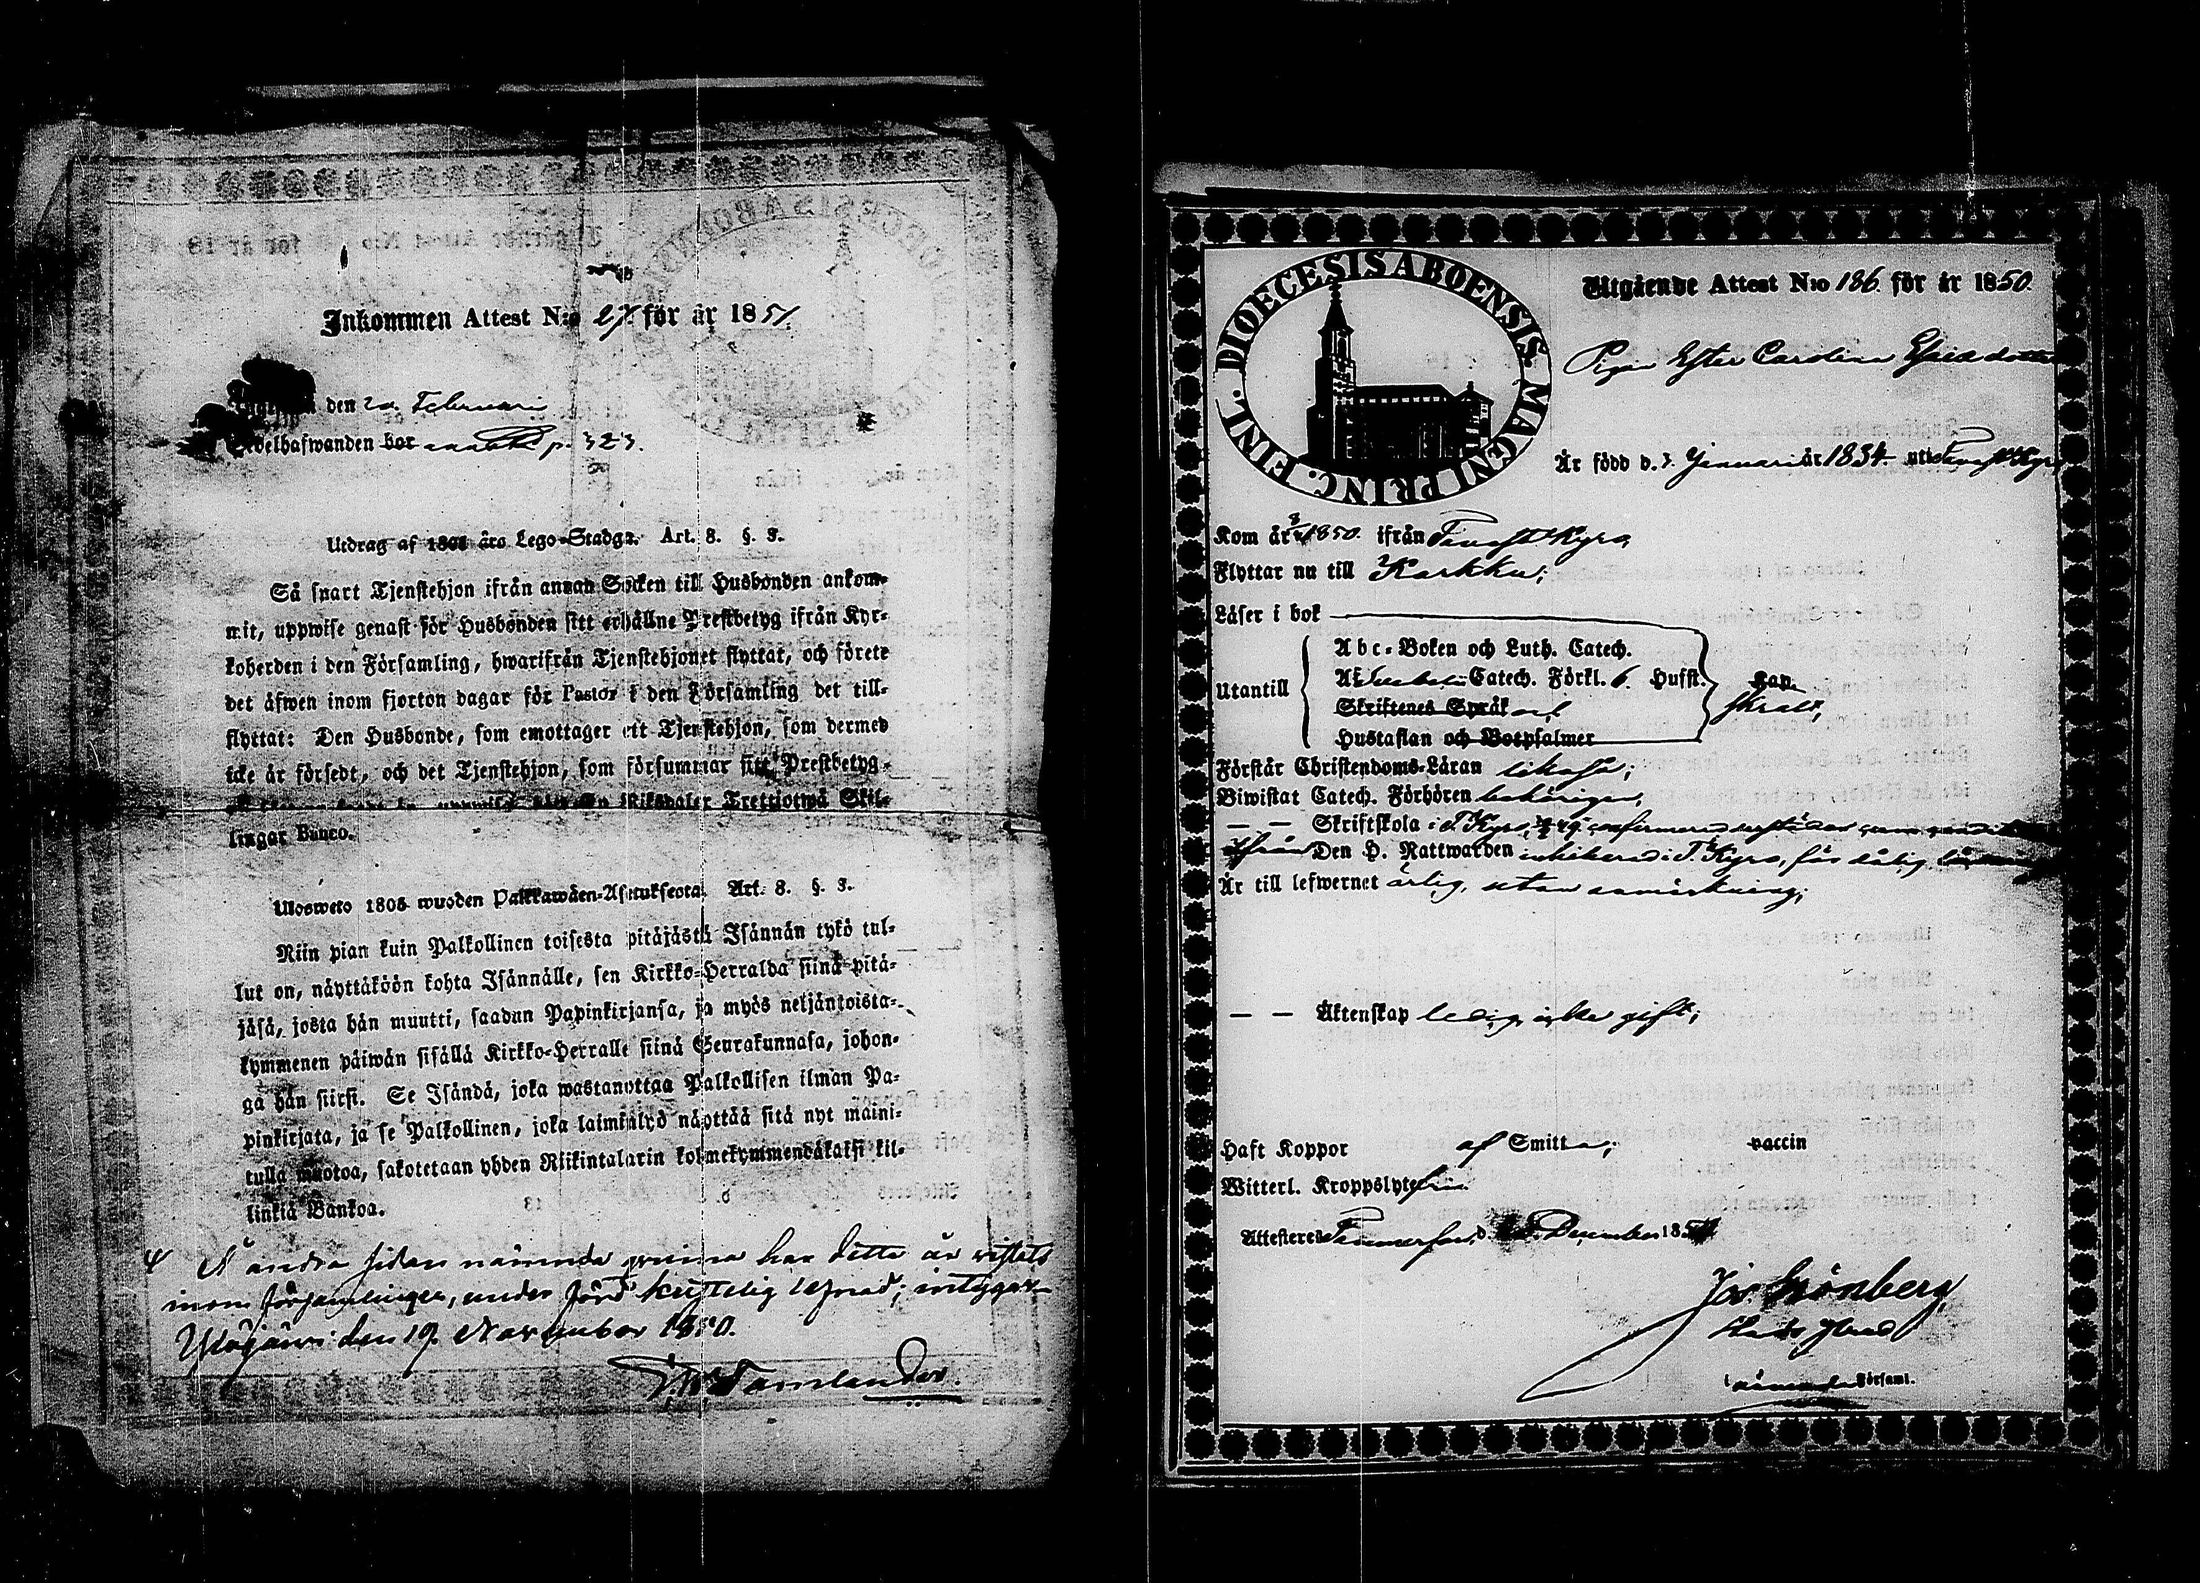 Inkommen Attest N:o 27. för år 1851.
den 20. Februari
bor p. 323.
Utdrag af 1805 års Lego-Stadga. Art. 8. §. 3.
Så snart Tjenstehjon ifrån annan Socken till Husbonden ankom-
mit, uppwise genast för Husbonden sitt erhållne Prestbetyg ifrån Kyr-
koherden i den Församling, hwarifrån Tjenstehjonet flyttat, och förete
det äfwen inom fjorton dagar för Pastor i den Församling det till-
flyttat: Den Husbonde, som emottager ett Tjenstehjon, som dermed
icke är försedt, och det Tjenstehjon, som försummar sitt Prestbetyg
Riksdaler Trettiotwå Skil-
lingar Banco.
Ulosweto 1805 wuoden Palkkawäen-Asetuksesta. Art. 8. §. 3.
Niin pian kuin Palkollinen toisesta pitäjästä Isännän tykö tul-
lut on, näyttäköön kohta Isännälle, sen Kirkko-Herralda siinä pitä-
jäsä, josta hän muutti, saadun Papinkirjansa, ja myös neljäntoista-
kymmenen päiwän sisällä Kirkko-Herralle siinä Seurakunnasa, johon-
ga hän siirsi. Se Isändä, joka wastanottaa Palkollisen ilman Pa-
pinkirjata, ja se Palkollinen, joka laiminlyö näyttää sitä nyt maini-
tulla muotoa, sakotetaan yhden Riikintalarin kolmekymmendäkaksi kil-
linkiä Bankoa.
Å andra sidan nämnda qvinna har detta år vistats
inom församlingen, under förd kristelig lefnad; intygar
Ylöjärvi den 19 November 1850.
DIOECESIS ABOENSIS MAGNI PRINC. FINL.
Utgående Attest N:o 186. för år 1850.
Pigan Ester Carolina
Är född d. 3. Januari år 1834. uti Tavast Kyro
Kom år 1850. ifrån Tavast Kyro,
Flyttar nu till Karkku;
Läser i bok
Abc-Boken och Luth. Catech.
Utantill Catech. Förkl. 6. Husst.
Skriftenes Språk och
Hustaflan och Botpsalmer
Förstår Christendoms-Läran likaså;
Biwistat Catech. Förhören behörigen,
— — Skriftskola i T. Kyro,
Den H. Nattwarden i T. Kyro, för
Är till lefwernet ärlig, utan anmärkning;
— — Äktenskap ledig, icke gift;
Haft Koppor af Smitta; vaccin
Witterl. Kroppslyte fri.
Attesterer Tammerfors, d. December 1850
Joh. Grönberg,
i nämnde Församl.